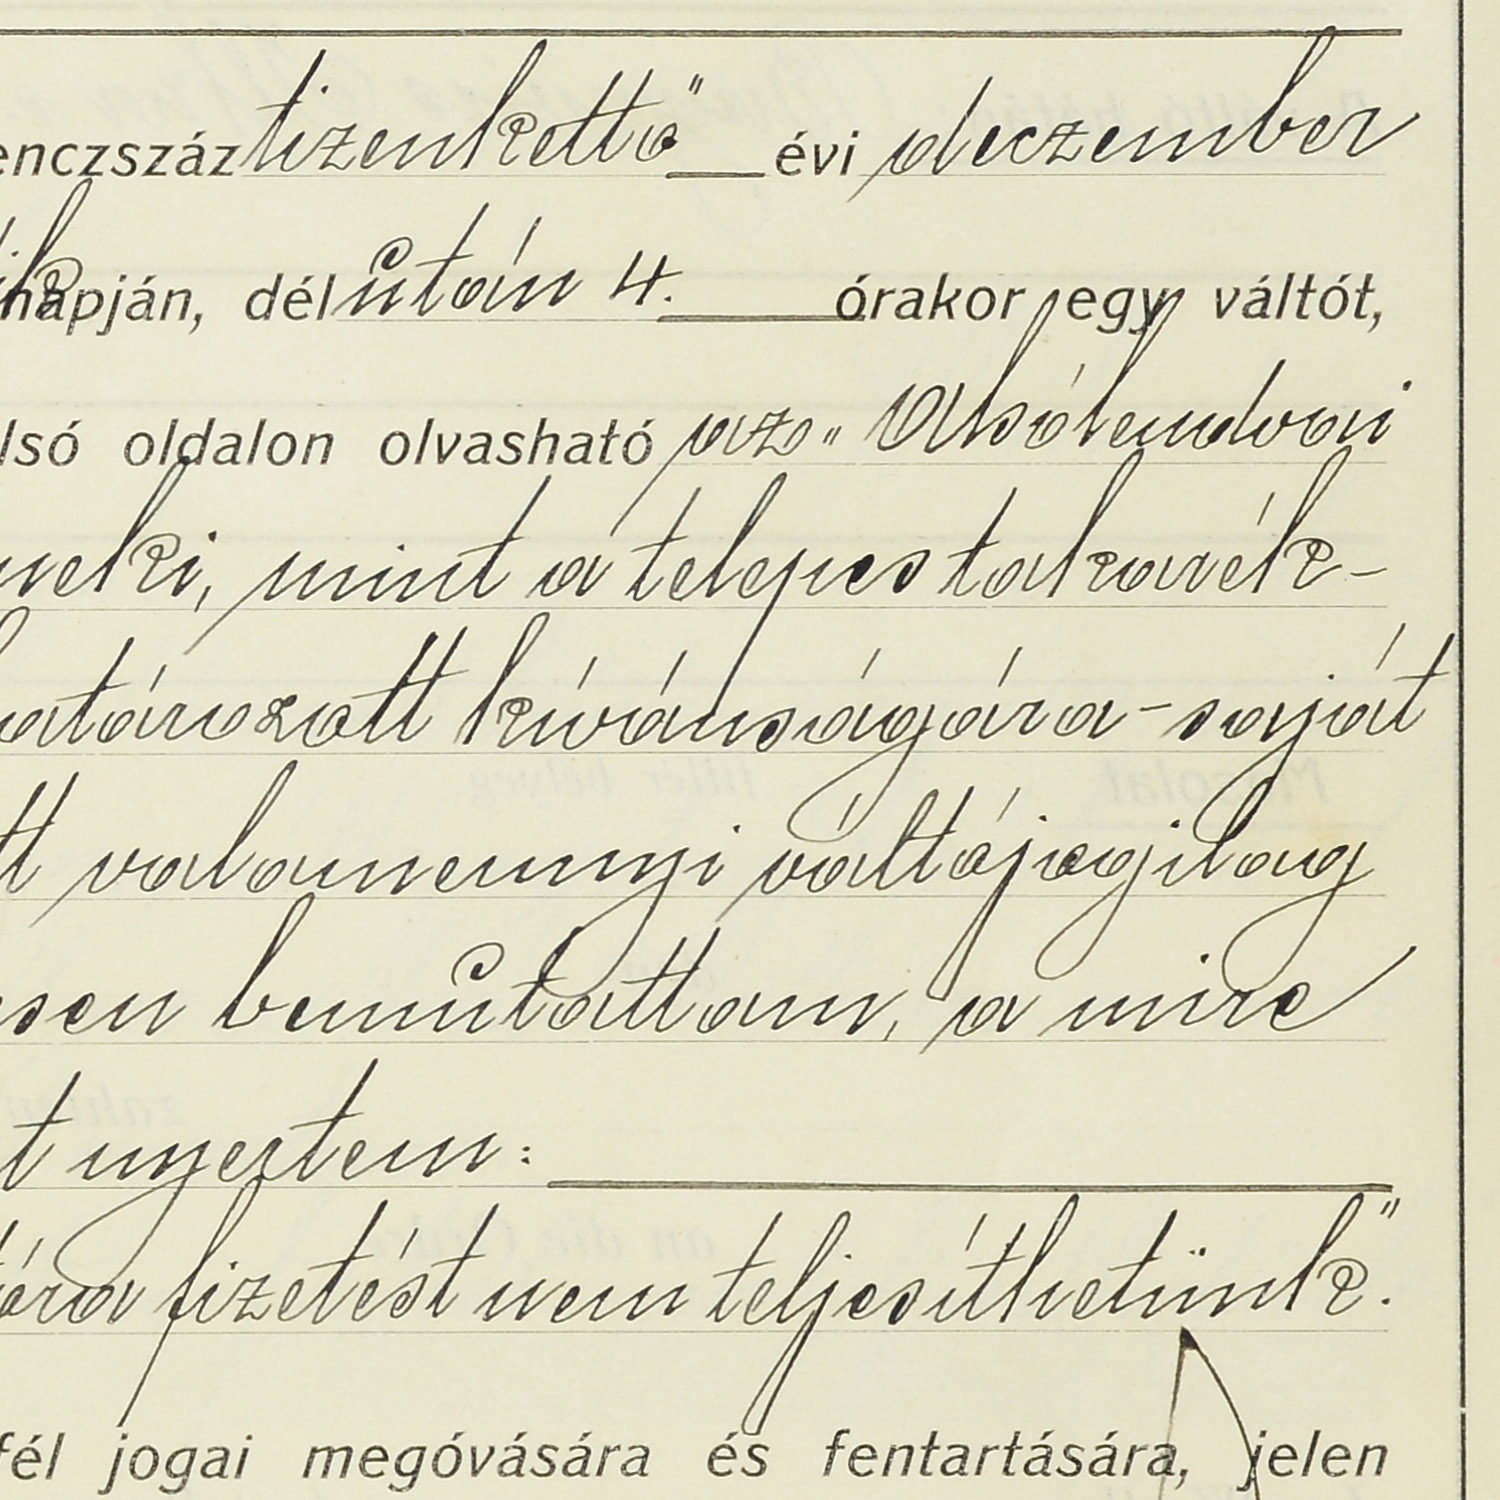 enczszáz tizenkettő évi deczember
ik napján, délután 4. órakor egy váltót,
lső oldalon olvasható az „Alsólendvai
neki, mint a telepes takarék-
atározott kívánságára - saját
tt valamennyi váltójogilag
esen bemutattam, a mire
t nyertem:
ára fizetést nem teljesíthetünk."
fél jogai megóvására és fentartására, jelen